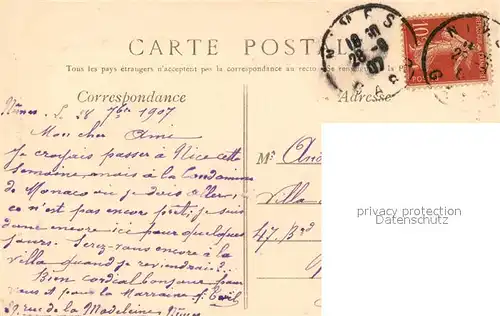 CARTE POSTALE
Tous les pays étrangers n'acceptent pas la correspondance au recto. Se renseigner
Correspondance
Adresse
NIMES
GARD
10
Nîmes, le 28 7bre 1907
Mon cher Ame
Je croyais passer à Nice cette
semaine, mais à la Condamine
de Monaco où je dois aller,
ce n'est pas encore prêt; je suis
donc encore ici pour quelques
jours. Serez-vous encore à la
villa quand je reviendrai?
Bien cordial bonjour pour
vous et pour la Marraine
rue de la Madeleine Nîmes
Mr
Villa
47. Bd
privacy protection
Datenschutz